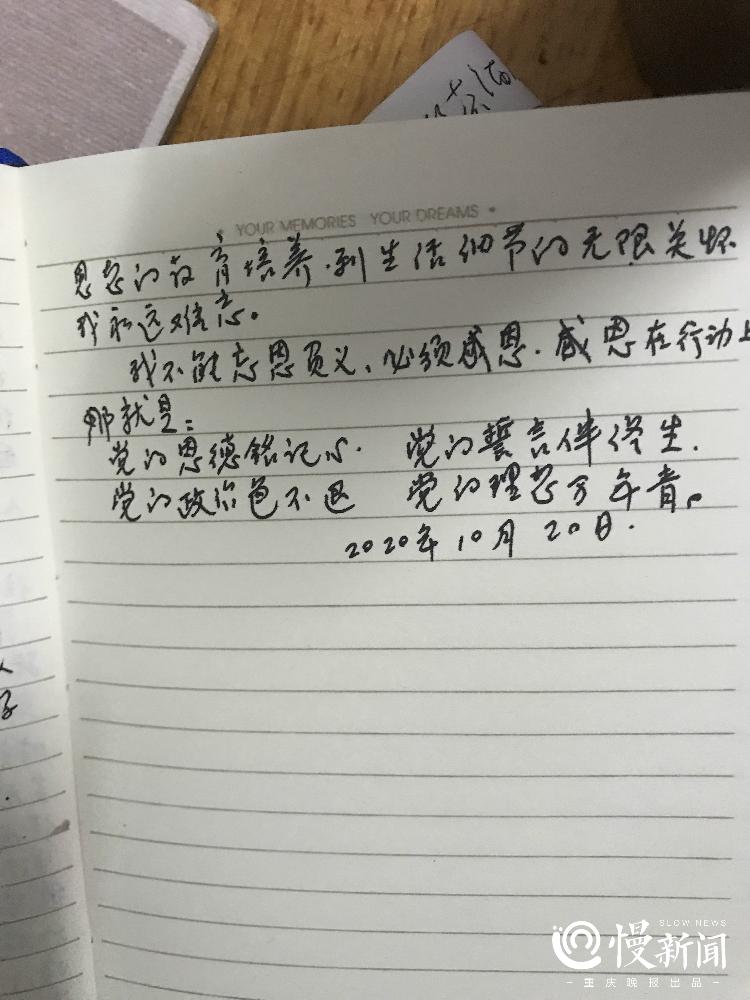 YOUR MEMORIES YOUR DREAMS
思想的教育培养.到生活细节的无限关怀
我永远难忘。
我不能忘恩负义、必须感恩.感恩在行动上
那就是:
党的恩德铭记心. 党的誓言伴终生.
党的政治色不退 党的理想万年青。
2020年10月20日.
SLOW NEWS
慢新闻
-重庆晚报出品-